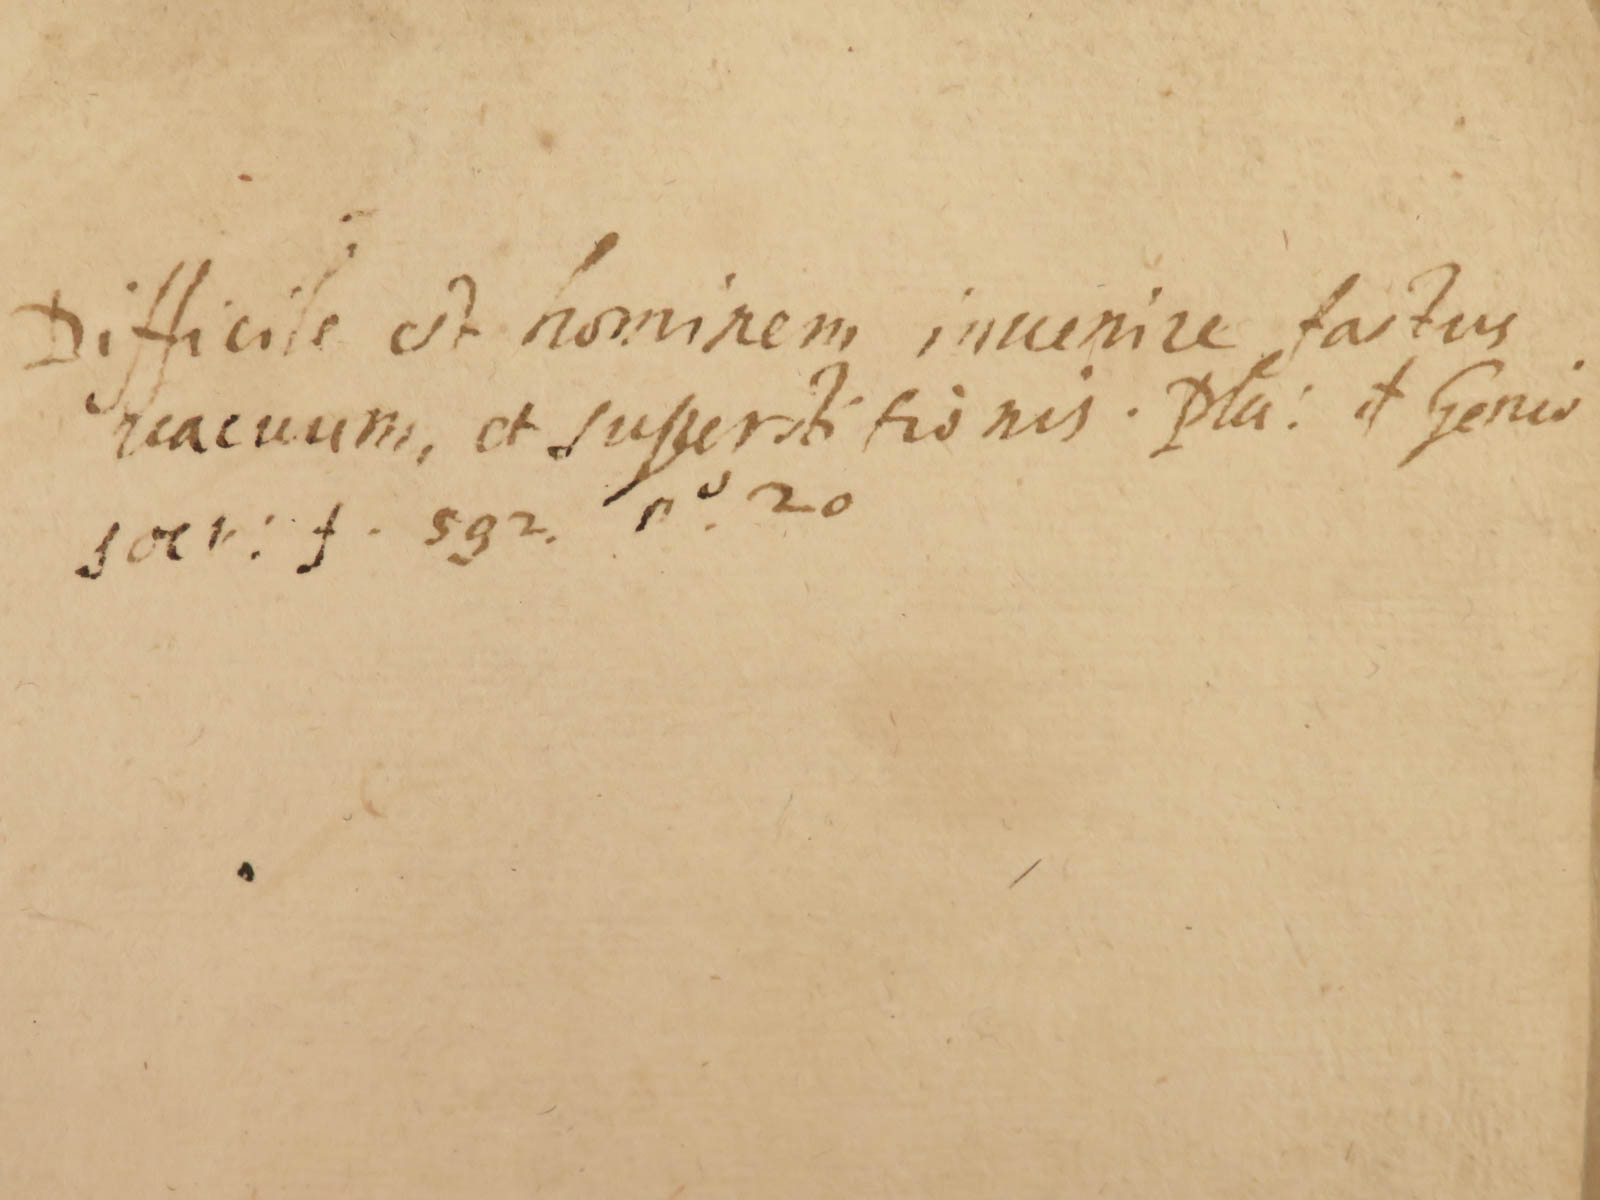 Difficile est hominem inuenire fastus
uacuum, et superstitionis. Plu: d Genio
socr: f. 592. nº. 20